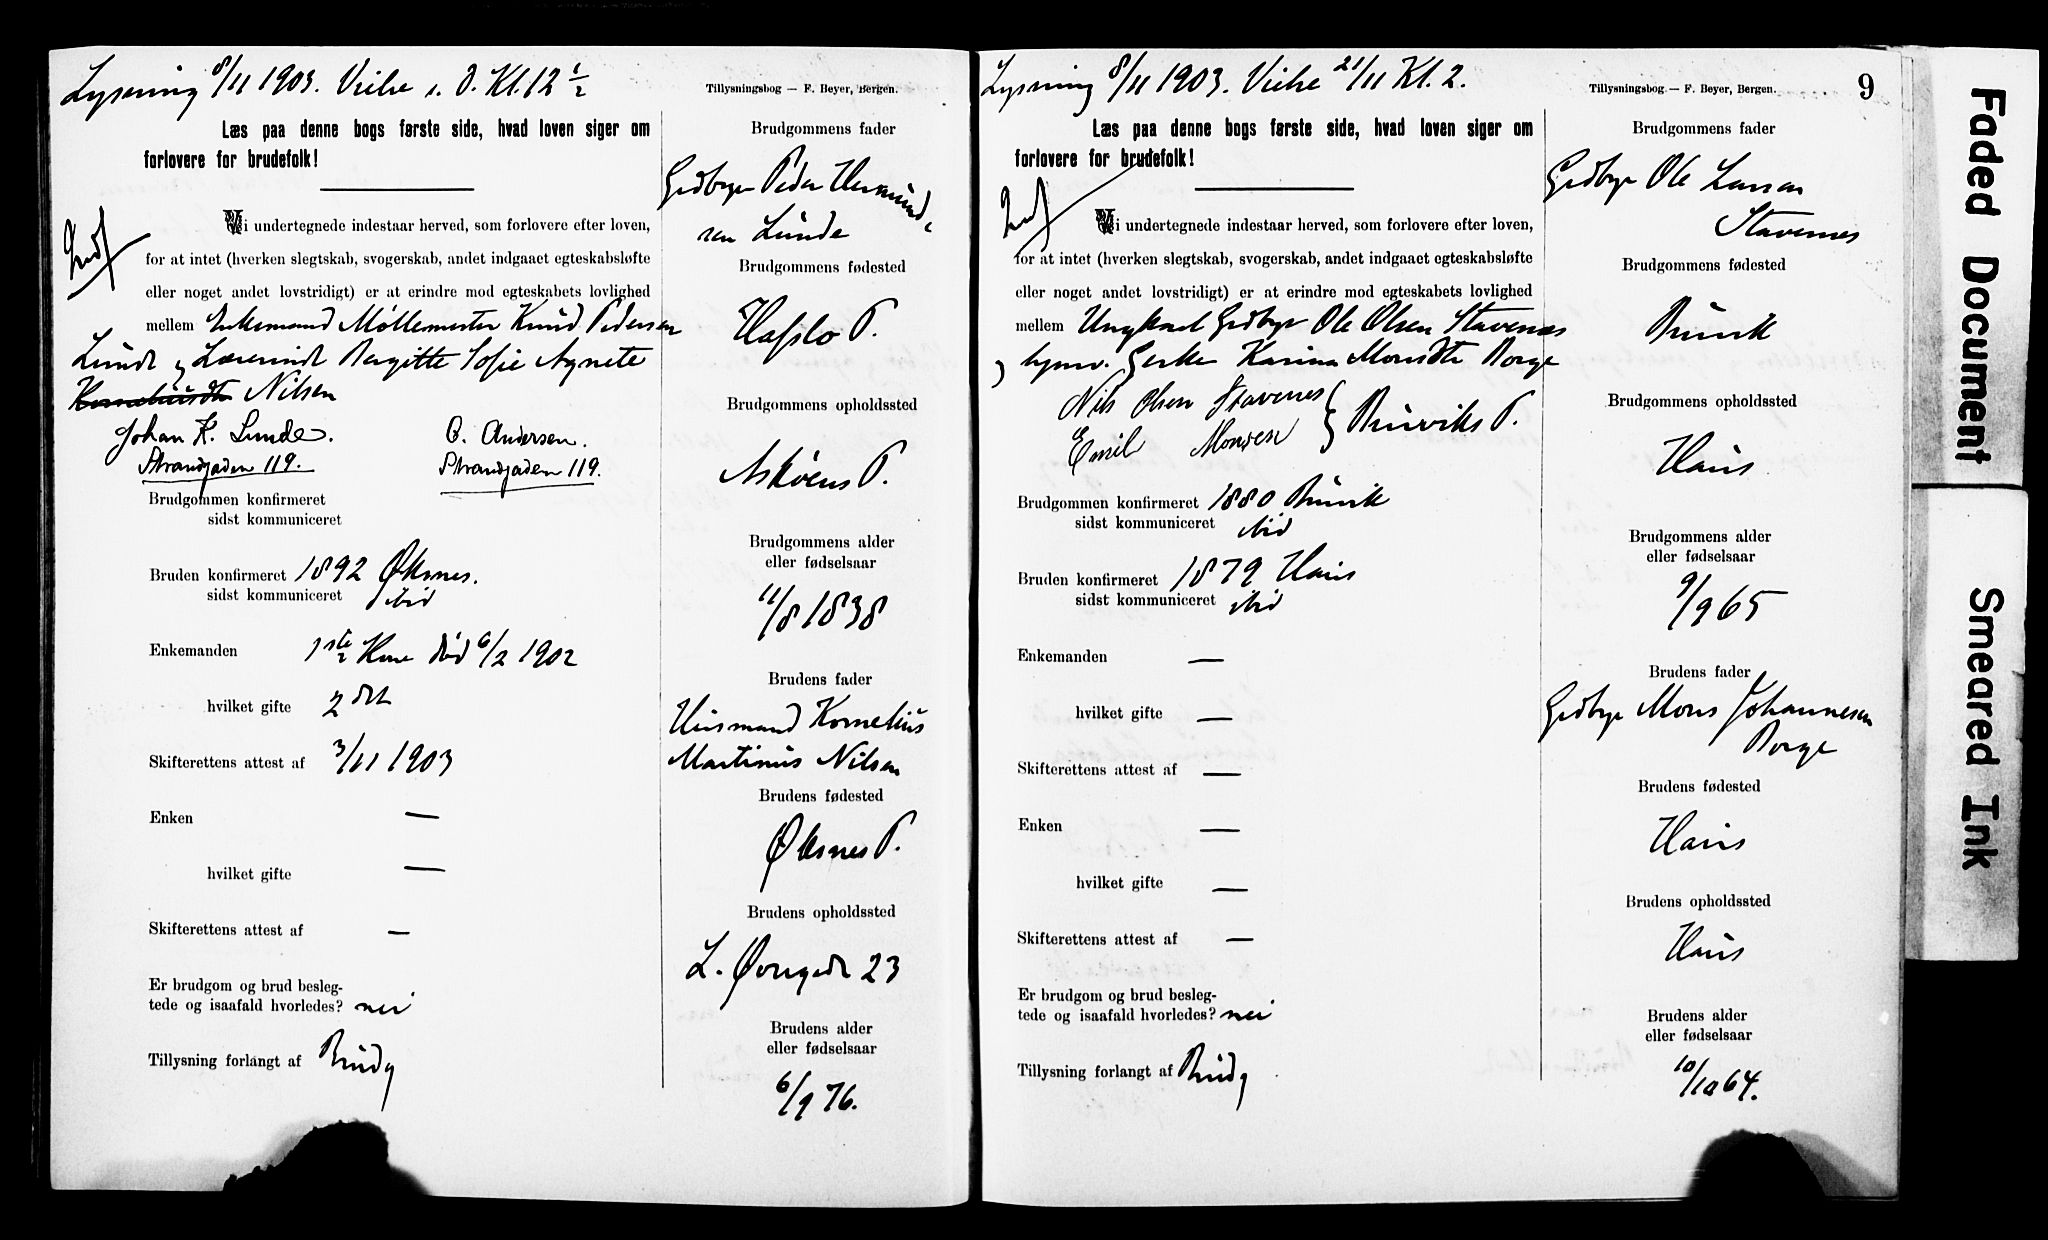 Lysning 8/11 1903. Vielse s. D. Kl. 12 1/2
Tillysningsbog — F. Beyer, Bergen.
Læs paa denne bogs første side, hvad loven siger om
forlovere for brudefolk!
Indf
Vi undertegnede indestaar herved, som forlovere efter loven,
for at intet (hverken slegtskab, svogerskab, andet indgaaet egteskabsløfte
eller noget andet lovstridigt) er at erindre mod egteskabets lovlighed
mellem Enkemand Møllemester Knud Pedersen
Lunde og Læreinde Bergitte Sofie Agnete
Nilsen
Johan K. Lunde. O. Andersen.
Strandgaden 119. Strandgaden 119.
Brudgommen konfirmeret
sidst kommuniceret
Bruden konfirmeret 1892 Øksnes.
sidst kommuniceret ibid
Enkemanden 1ste Kone død 6/2 1902
hvilket gifte 2det
Skifterettens attest af 3/11 1903
Enken —
hvilket gifte —
Skifterettens attest af —
Er brudgom og brud besleg-
tede og isaafald hvorledes? nei
Tillysning forlangt af Brudg
Brudgommens fader
Grdbrgr Peder Hermund-
sen Lunde
Brudgommens fødested
Hafslo P.
Brudgommens opholdssted
Askøens P.
Brudgommens alder
eller fødselsaar
11/8 1838
Brudens fader
Husmand Kornelius
Martinus Nilsen
Brudens fødested
Øksnes P.
Brudens opholdssted
L. Øvregade 23
Brudens alder
eller fødselsaar
6/9 76.
Lysning 8/11 1903. Vielse 21/11 Kl. 2.
Tillysningsbog — F. Beyer, Bergen.
9
Læs paa denne bogs første side, hvad loven siger om
forlovere for brudefolk!
Indf
Vi undertegnede indestaar herved, som forlovere efter loven,
for at intet (hverken slegtskab, svogerskab, andet indgaaet egteskabsløfte
eller noget andet lovstridigt) er at erindre mod egteskabets lovlighed
mellem Ungkarl Grdbrgr Ole Olsen Stavenes
og Gerke Karina Monsdtr Borge
Nils Olsen Stavenes
Emil Monsen } Bruviks P.
Brudgommen konfirmeret 1880 Bruvik
sidst kommuniceret ibid
Bruden konfirmeret 1879 Haus
sidst kommuniceret ibid
Enkemanden —
hvilket gifte —
Skifterettens attest af —
Enken —
hvilket gifte —
Skifterettens attest af —
Er brudgom og brud besleg-
tede og isaafald hvorledes? nei
Tillysning forlangt af Brudg
Brudgommens fader
Grdbrgr Ole Larsen
Stavenes
Brudgommens fødested
Bruvik
Brudgommens opholdssted
Haus
Brudgommens alder
eller fødselsaar
9/9 65
Brudens fader
Grdbrgr Mons Johannesen
Borge
Brudens fødested
Haus
Brudens opholdssted
Haus
Brudens alder
eller fødselsaar
10/10 64.
Faded Document
Smeared Ink